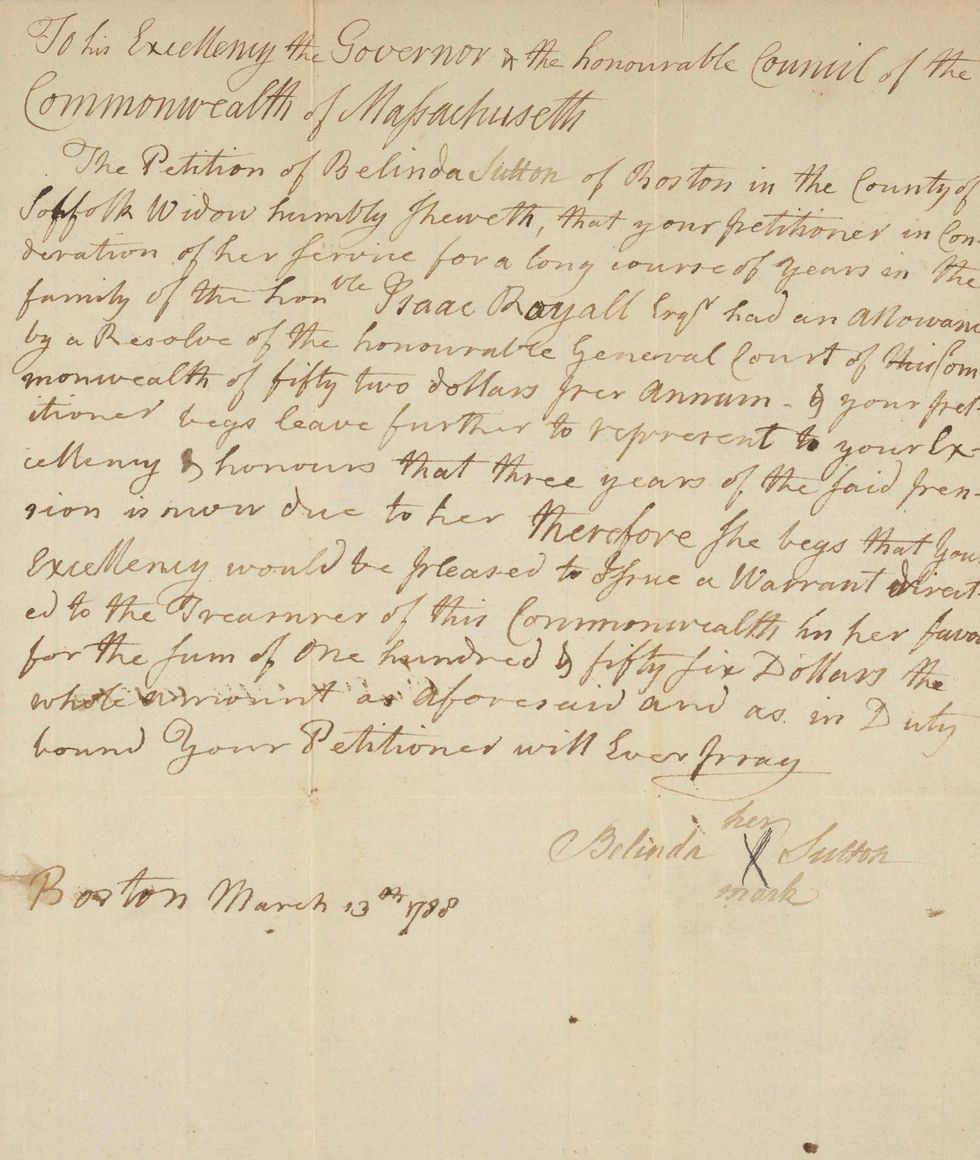 To his Excellency the Governor & the honourable Council of the
Commonwealth of Massachusetts
The Petition of Belinda Sutton of Boston in the County of
Soffolk Widow humbly sheweth, that your petitioner in Con-
deration of her service for a long course of years in the
family of the honble Isaac Royall Esqr had an Allowanc
by a Resolve of the honourable General Court of this Com
monwealth of fifty two dollars per Annum - & your pet
itioner begs leave further to represent to your Ex-
cellency & honours that three years of the said pen
sion is now due to her therefore she begs that You
Excellency would be pleased to Issue a Warrant direct-
ed to the Treasurer of this Commonwealth in her favo
for the sum of One hundred & fifty six Dollars the
whole amount as aforesaid and as in Duty
bound Your Petitioner will Ever pray
her
Belinda X Sutton
mark
Boston March 13th 1788